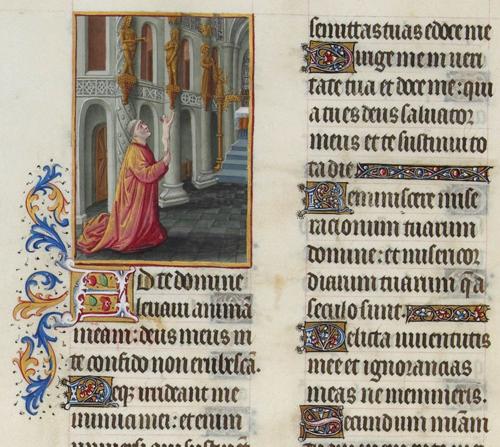 Ad te domine
levavi animā
meam: deus meus in
te confido non erubescā.
Neqꝫ irrideant me
inimici mei: et enim
universi qui
semittas tuas edoce me
Dirige me in veri
tate tua et doce me: qui
a tu es deus salvator
meus et te sustinui to
ta die
Reminiscere mise
racionum tuarum
domine: et misericor
diarum tuarum q̄ a
seculo sunt.
Delicta iuventutis
mee et ignorancias
meas ne memineris.
Secundum miām